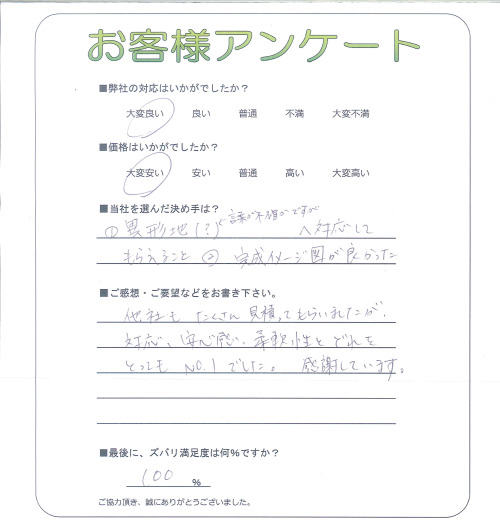 お客様アンケート
■弊社の対応はいかがでしたか？
大変良い 良い 普通 不満 大変不満
■価格はいかがでしたか？
大変安い 安い 普通 高い 大変高い
■当社を選んだ決め手は？
言葉が不確かですが
①異形地(?) へ対応して
もらえること ② 完成イメージ図が良かった
■ご感想・ご要望などをお書き下さい。
他社も たくさん 見積ってもらいましたが、
対応、安心感、柔軟性と どれを
とっても NO.1 でした。 感謝しています。
■最後に、ズバリ満足度は何％ですか？
100 ％
ご協力頂き、誠にありがとうございました。